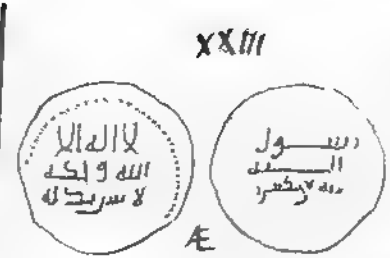 XXIII
لا اله الا
الله وحده
لا سريك له
رسول
الله
Æ